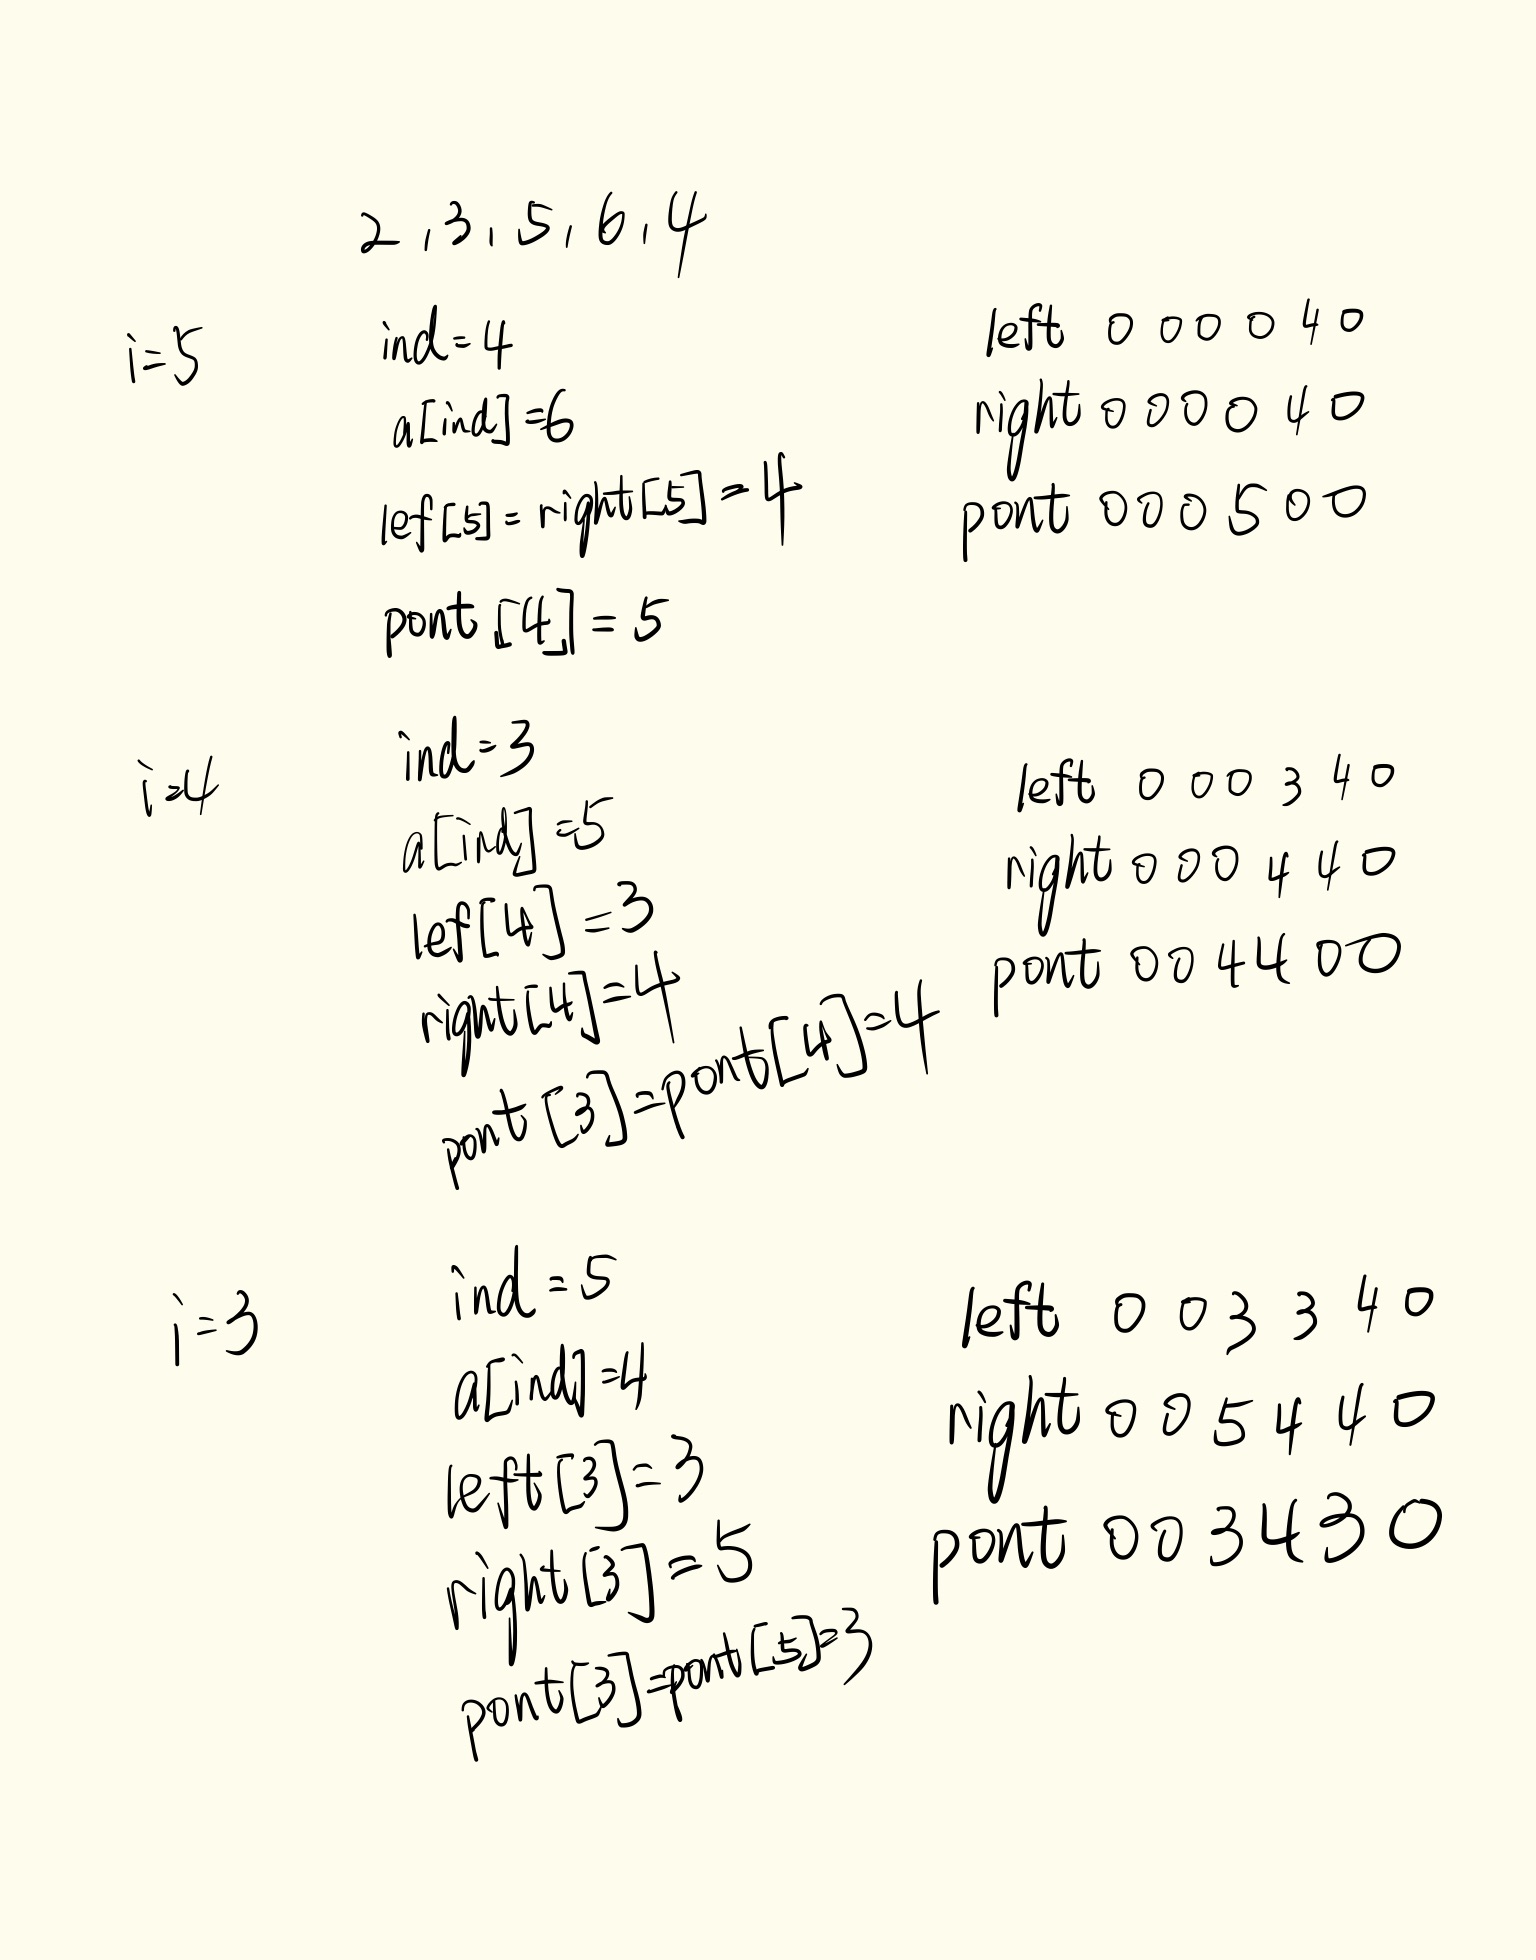 2,3,5,6,4
i=5
ind=4
a[ind]=6
lef[5]=right[5]=4
pont[4]=5
left 0 0 0 0 4 0
right 0 0 0 0 4 0
pont 0 0 0 5 0 0
i=4
ind=3
a[ind]=5
lef[4]=3
right[4]=4
pont[3]=pont[4]=4
left 0 0 0 3 4 0
right 0 0 0 4 4 0
pont 0 0 4 4 0 0
i=3
ind=5
a[ind]=4
left[3]=3
right[3]=5
pont[3]=pont[5]=3
left 0 0 3 3 4 0
right 0 0 5 4 4 0
pont 0 0 3 4 3 0